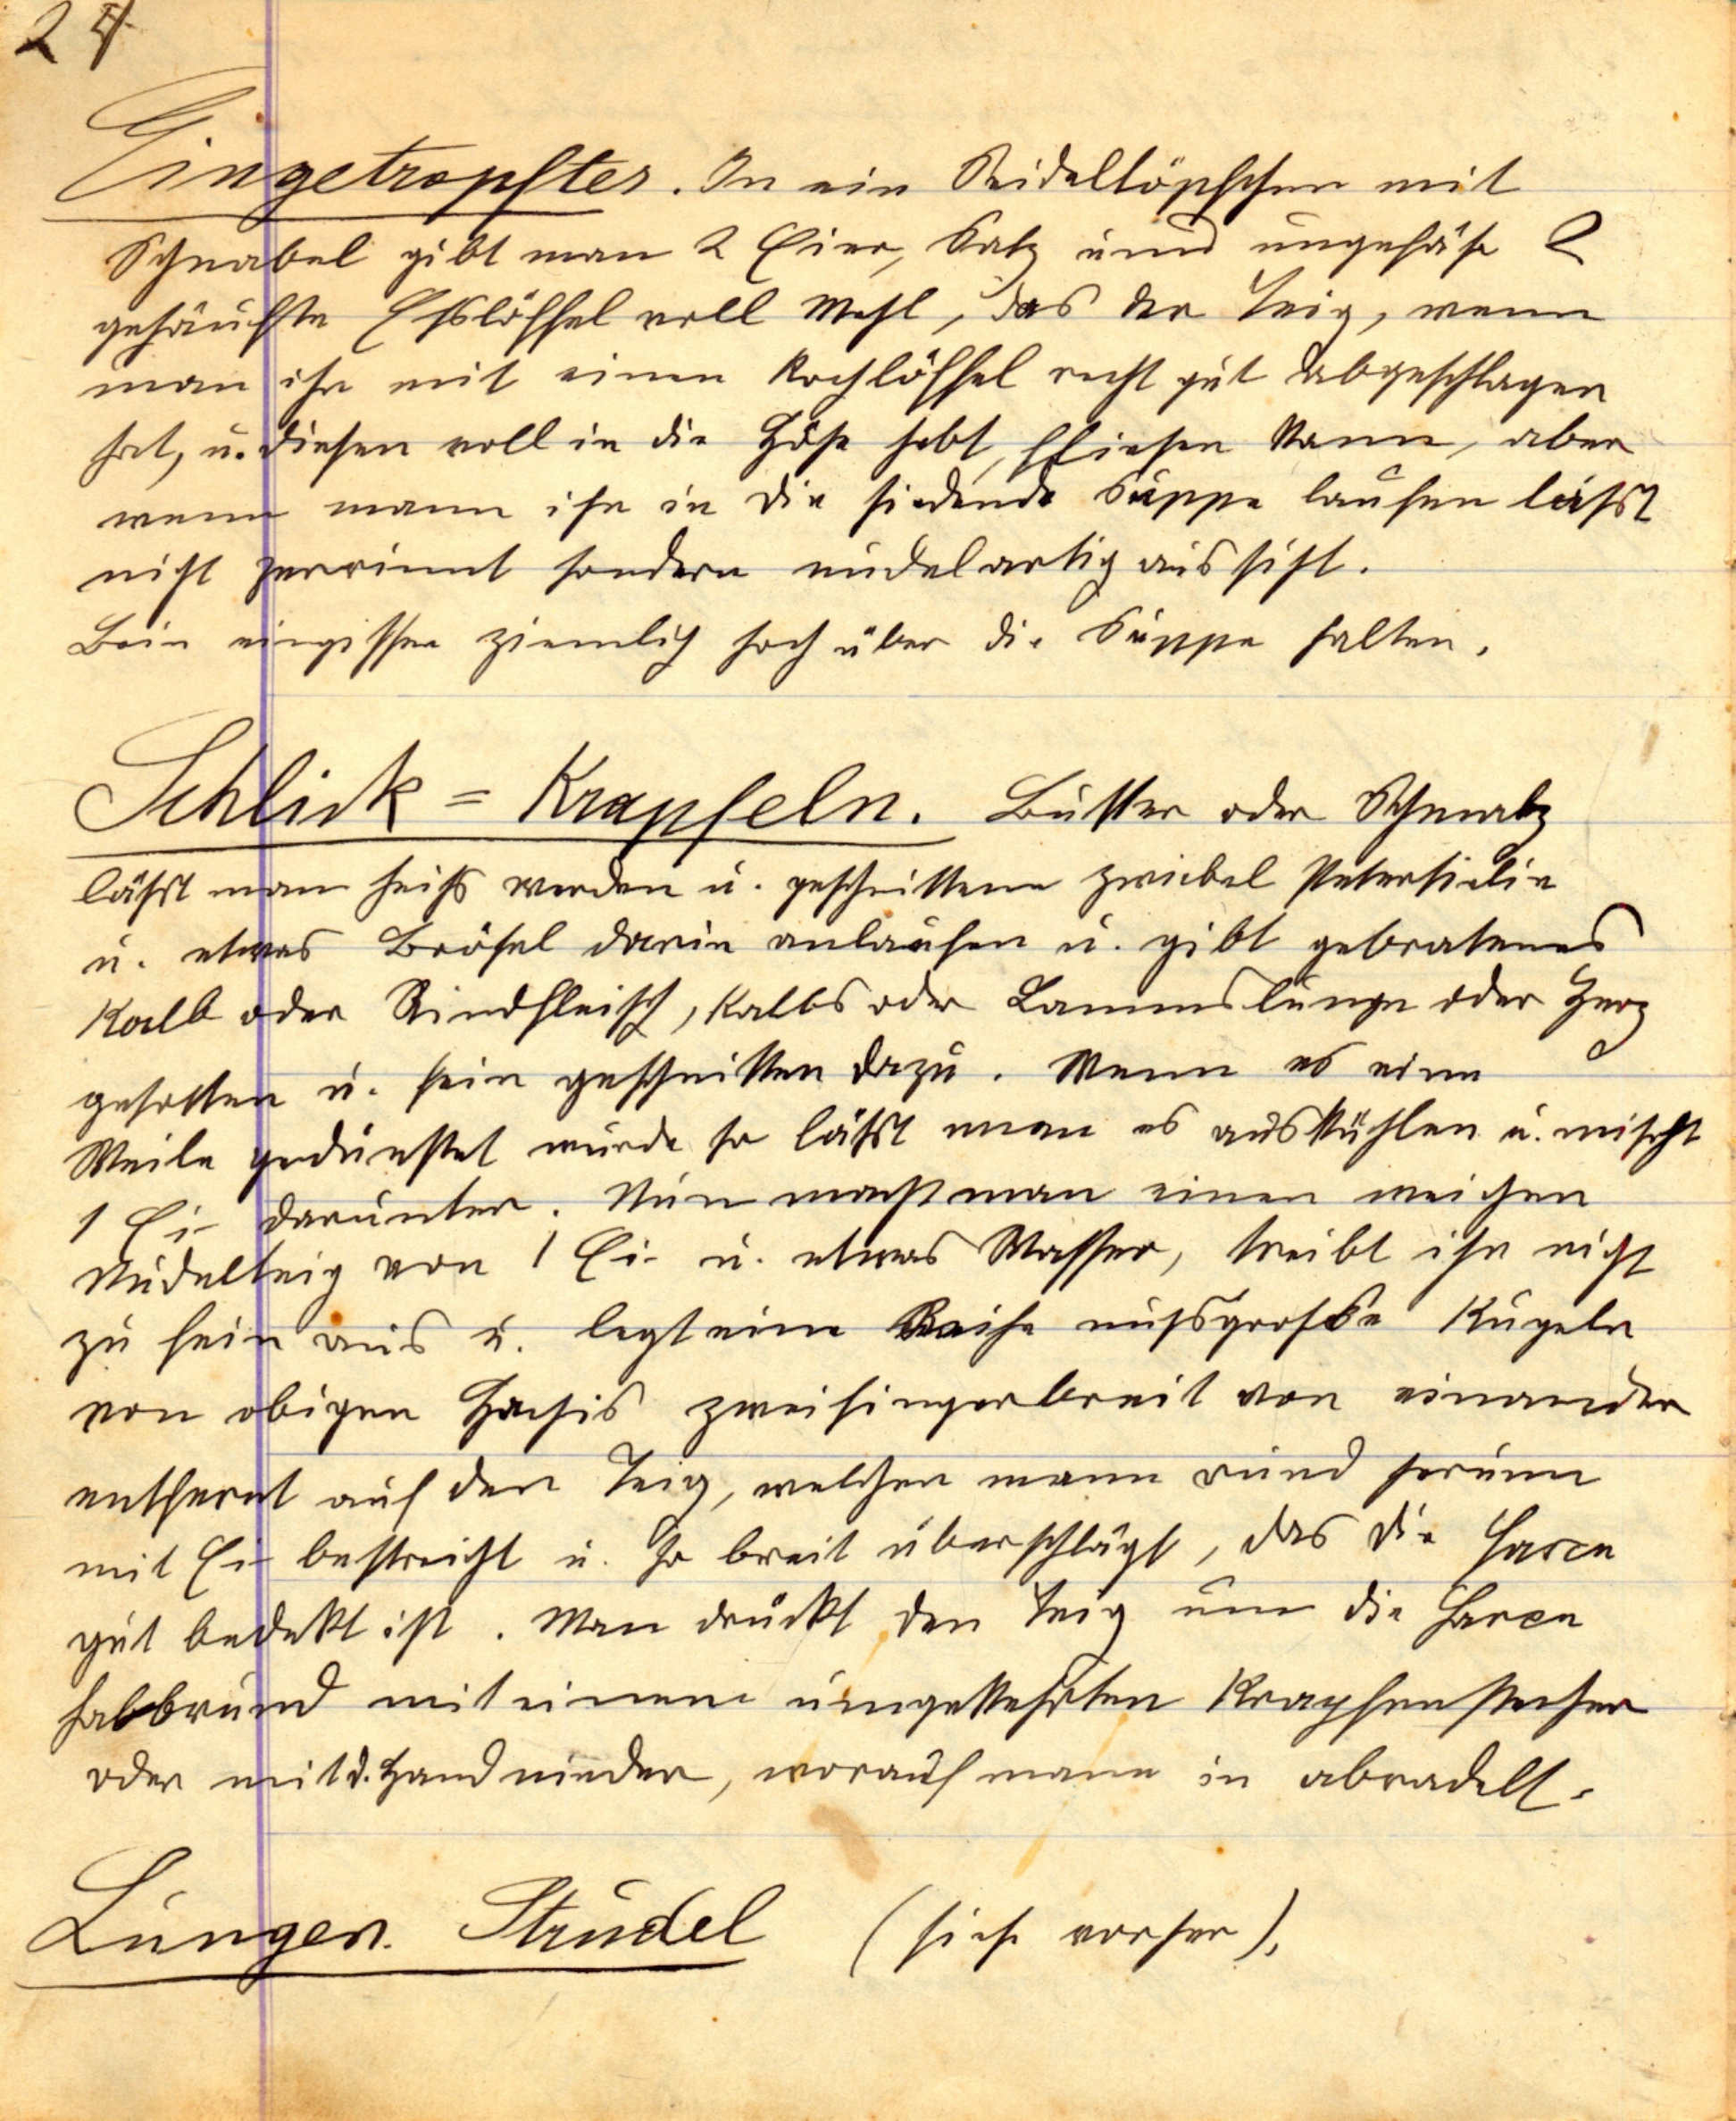 24
Eingetropftes. In ein Seideltöpfchen mit
Schnabel gibt man 2 Eier, Salz und ungefähr 2
gehäufte Esslöffel voll Mehl, das der Teig, wenn
man ihn mit einen Kochlöffel recht gut abgeschlagen
hat, u. diesen voll in die Höhe hebt, fliesen kann, aber
wenn mann ihn in die siedende Suppe laufen lässt
nicht zerrinnt sondern nudelartig aussieht.
Bein eingissen ziemlich hoch über die Suppe halten.
Schlick = Krapfeln. Butter oder Schmalz
lässt man heiss werden u. geschnittene Zwiebel Petersielie
u. etwas Brösel darin anlaufen u. gibt gebratenes
Kalb oder Rindfleisch, Kalbs oder Lammslunge oder Herz
gesotten u. fein geschnitten dazu. Wenn es eine
Weile gedünstet wurde so lässt man es auskühlen u. mischt
1 Ei darunter. Nun macht man einen weichen
Nudelteig von 1 Ei u. etwas Wasser, treibt ihn nicht
zu fein aus u. legt eine Reihe nussgrosse Kugeln
von obigen Haschis zweifingerbreit von einander
entfernt auf den Teig, welchen mann rund herum
mit Ei bestreicht u. so breit überschlägt, das die Farce
gut bedekt ist. Man drückt den Teig um die Farce
halbrund mit einem umgekehrten Krapfenstecher
oder mit d. Hand nieder, worauf mann in abradelt.
Lungen Strudel (siehe vorher).